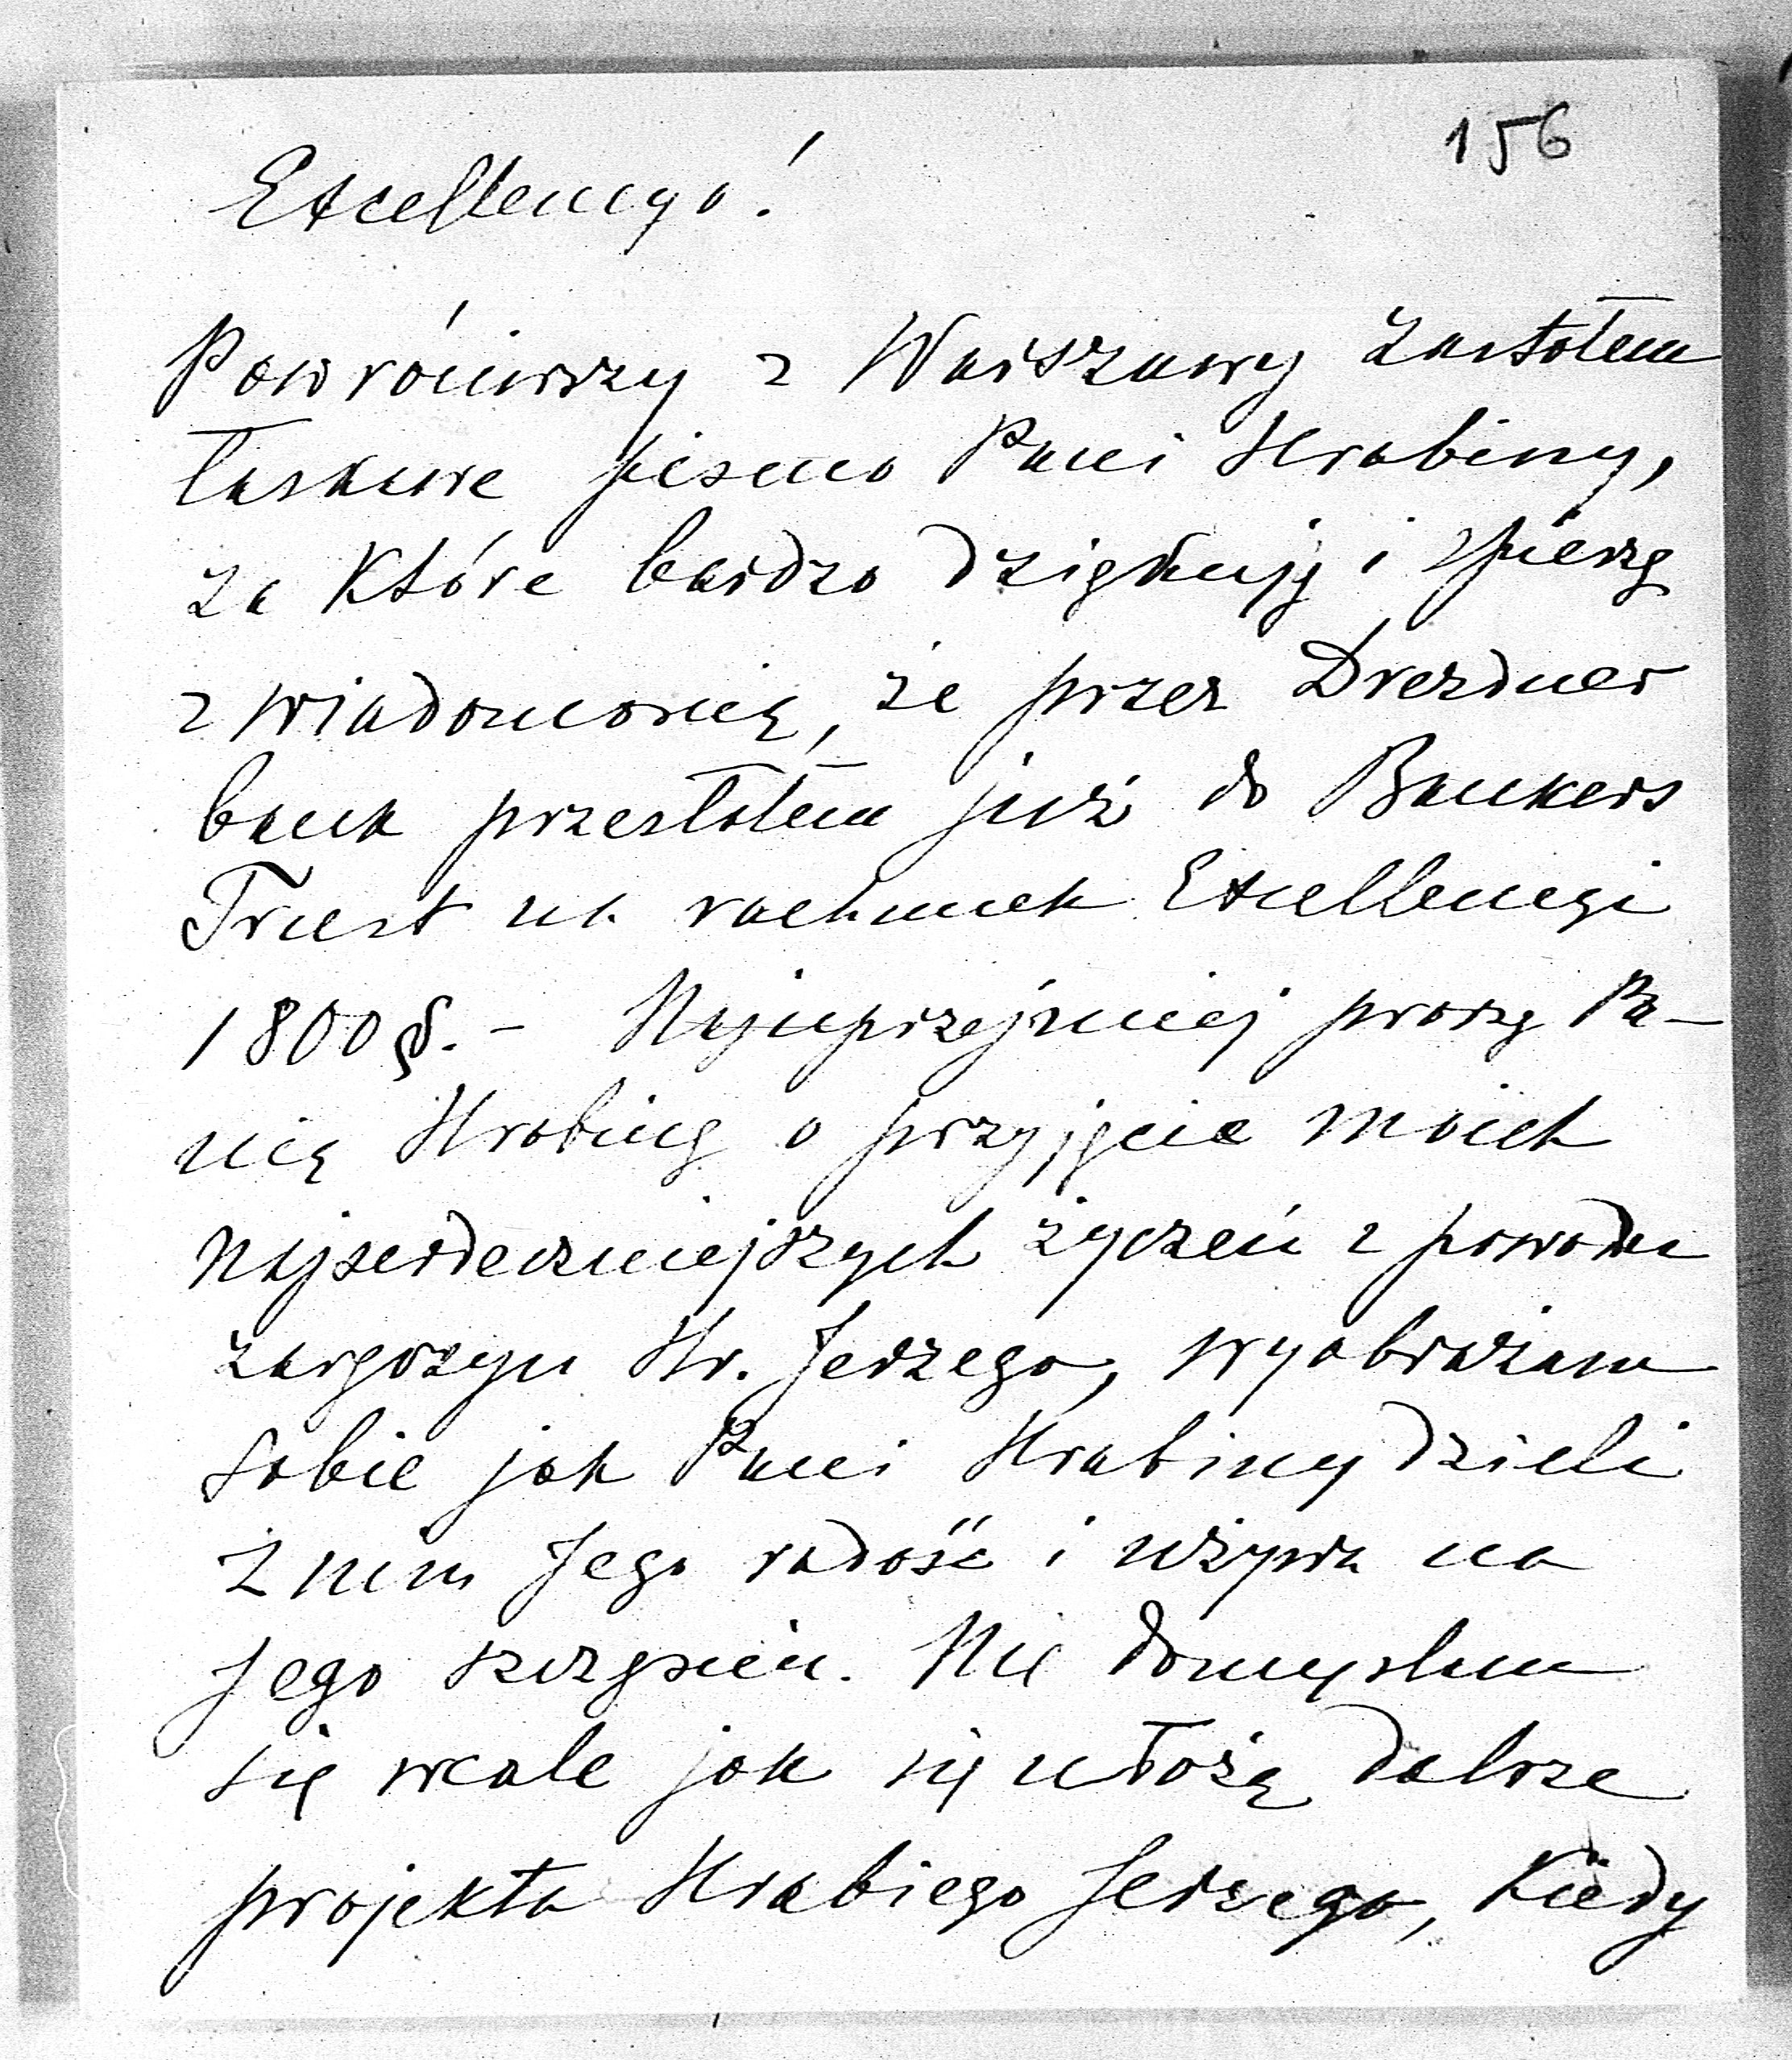 156
Excellencyo!
Powróciwszy z Warszawy zastałem
łaskawe pismo Pani Hrabiny,
za które bardzo dziękuję i spieszę
z wiadomością, że przez Drezdner
bank przesłałem już do Bankers
Trust na rachunek Excellencyi
1800 $. – Najuprzejmiej proszę Pa–
nią Hrabinę o przyjęcie moich
najserdeczniejszych życzeń z powodu
zaręczyn Hr. Jerzego, wyobrażam
sobie jak Pani Hrabina dzieli
z nim Jego radość i używa na
Jego szczęściu. Nie domyślam
się wcale jak się ułożą dalsze
projekta Hrabiego Jerzego, kiedy